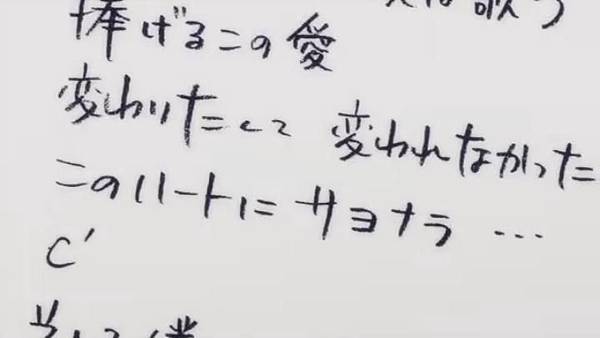 歌う
捧げるこの愛
変わりたくて 変われなかった
このハートにサヨナラ …
C'